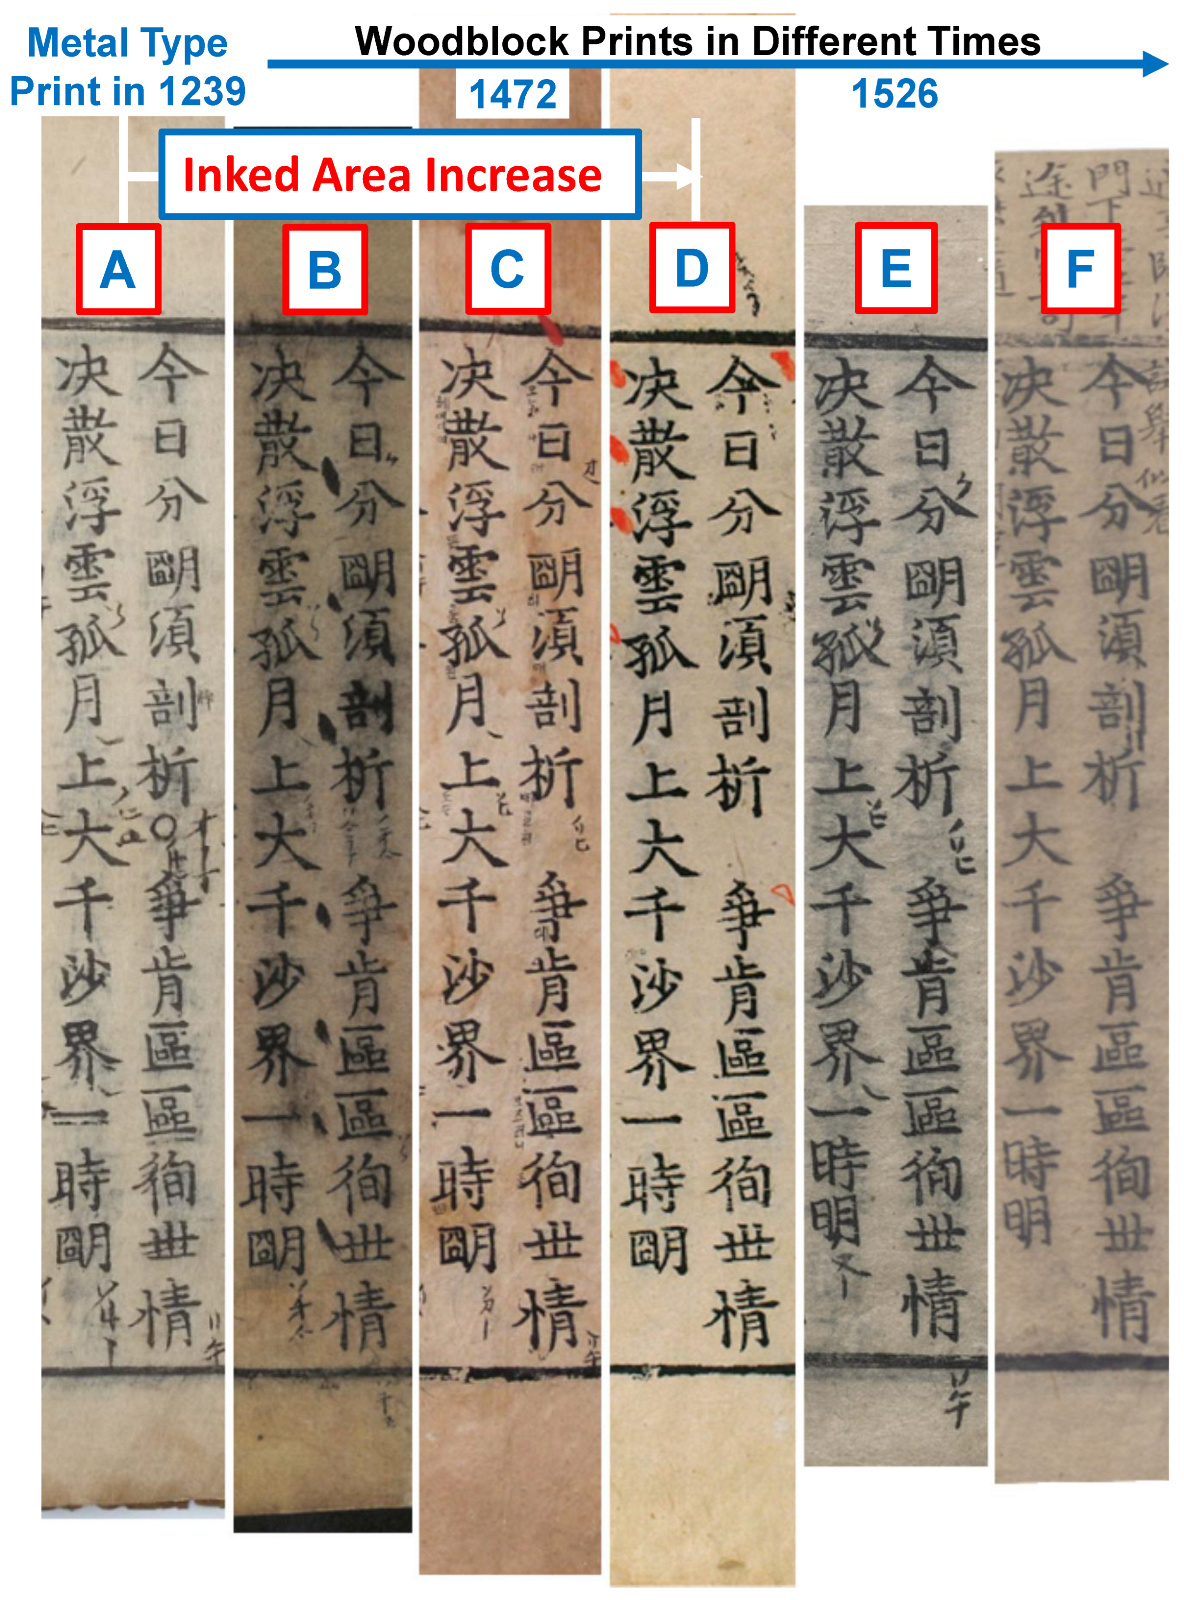 Metal Type
Print in 1239
Woodblock Prints in Different Times
1472
1526
Inked Area Increase
A
今日分朙湏剖析爭肯區區徇世情
决散浮雲孤月上大千沙界一時朙
B
今日分朙湏剖析爭肯區區徇世情
决散浮雲孤月上大千沙界一時朙
C
今日分朙湏剖析爭肯區區徇世情
决散浮雲孤月上大千沙界一時朙
D
今日分朙湏剖析爭肯區區徇世情
决散浮雲孤月上大千沙界一時朙
E
今日分朙湏剖析爭肯區區徇世情
决散浮雲孤月上大千沙界一時明
F
今日分朙湏剖析爭肯區區徇世情
决散浮雲孤月上大千沙界一時明